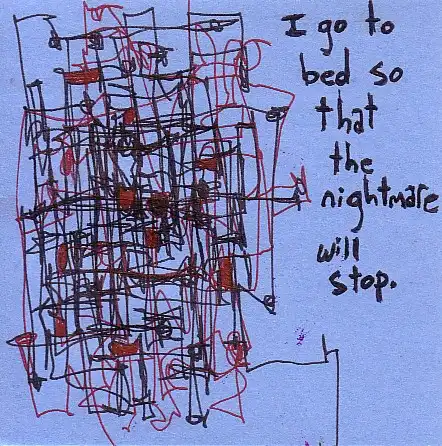 I go to
bed so
that
the
nightmare
will
stop.